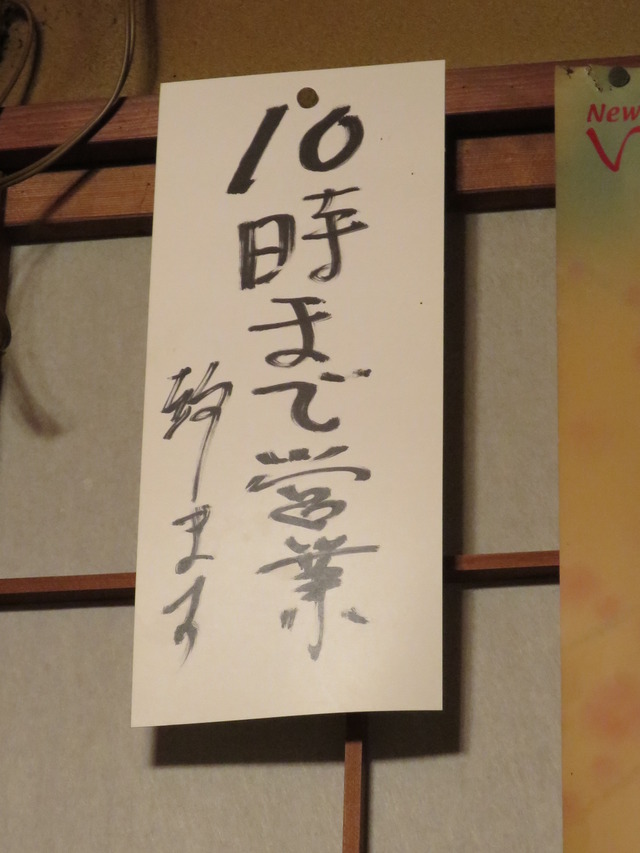 10時まで営業
致します
New